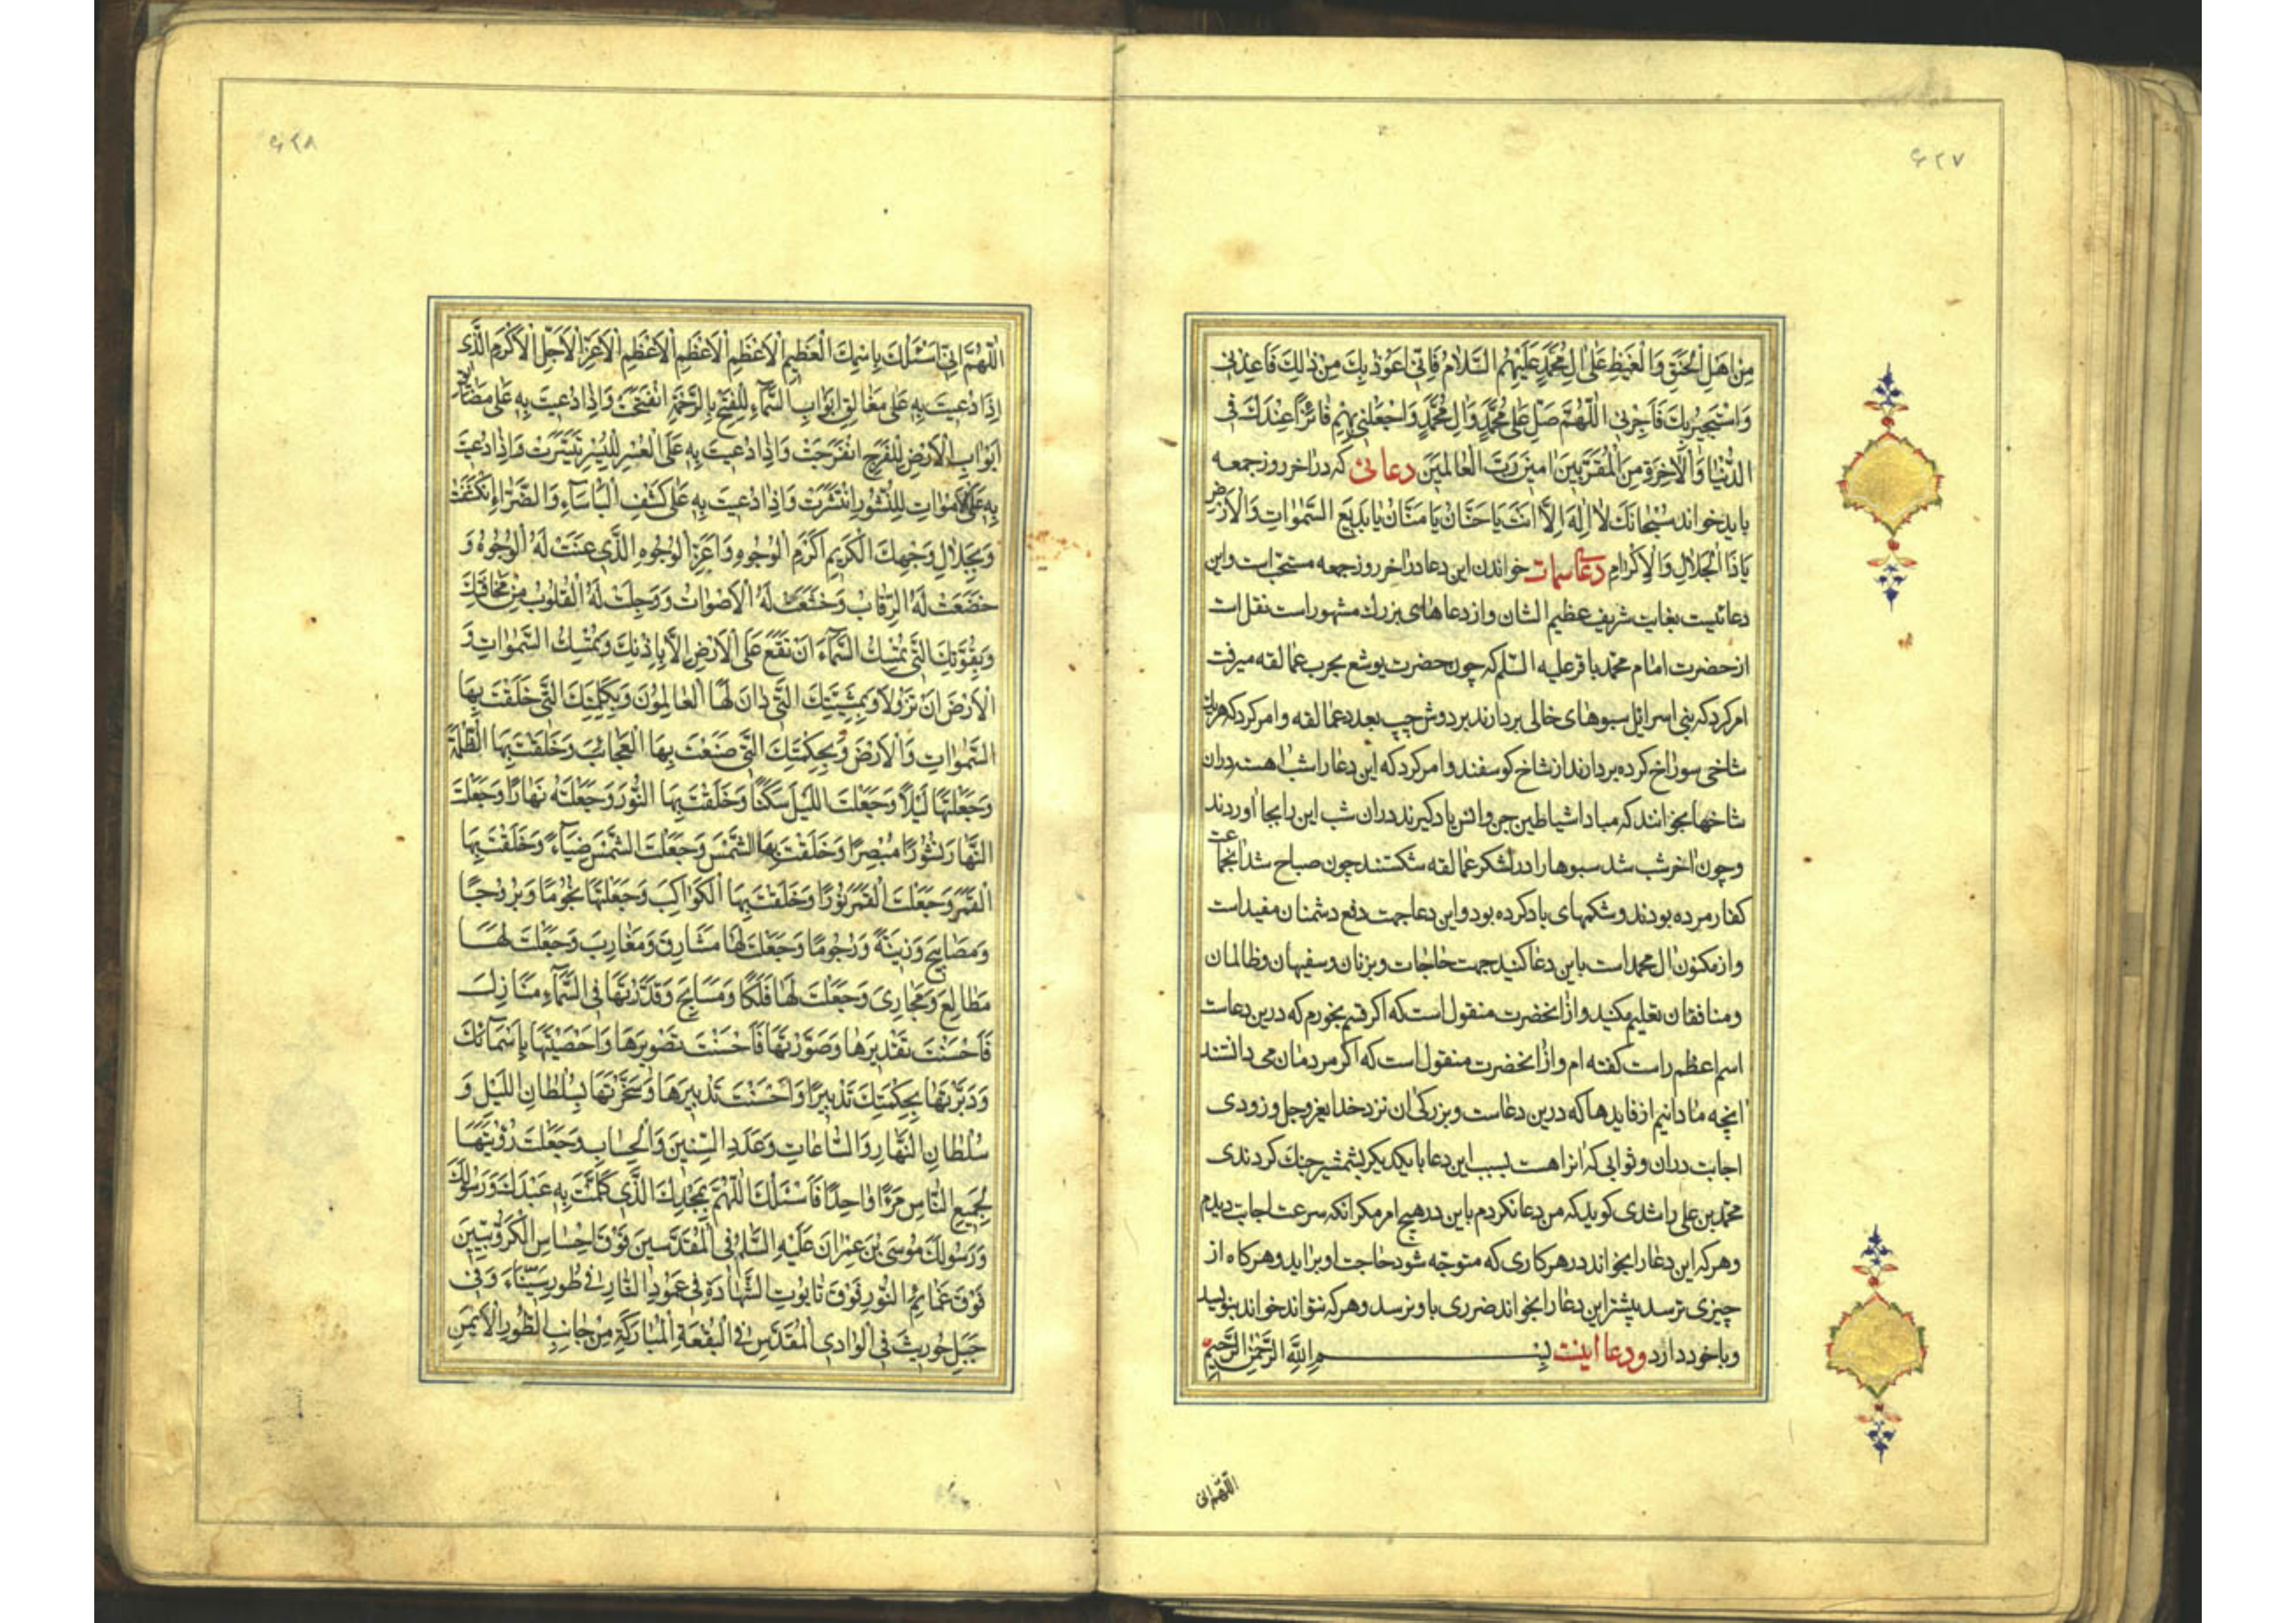 ۶۲۷
مِنْ اَهْلِ الْحَنَقِ وَالْغَيْظِ عَلٰى اٰلِ مُحَمَّدٍ عَلَيْهِمُ السَّلَامُ فَاِنّى اَعُوذُ بِكَ مِنْ ذٰلِكَ فَاَعِذْنى
وَاَسْتَجيرُ بِكَ فَاَجِرْنى اَللّٰهُمَّ صَلِّ عَلٰى مُحَمَّدٍ وَاٰلِ مُحَمَّدٍ وَاجْعَلْنى بِهِمْ فَائِزًا عِنْدَكَ فى
الدُّنْيَا وَالْاٰخِرَةِ وَمِنَ الْمُقَرَّبينَ اٰمينَ رَبَّ الْعَالَمينَ دعائی که در اخر روز جمعه
باید خواند سُبْحَانَكَ لَا اِلٰهَ اِلَّا اَنْتَ يَا حَنَّانُ يَا مَنَّانُ يَا بَديعَ السَّمٰوَاتِ وَالْاَرْضِ
يَا ذَا الْجَلَالِ وَالْاِكْرَامِ دعای سمات خواندن این دعا در اخر روز جمعه مستحب است و این
دعائیست بغایت شریف عظیم الشان و از دعا های بزرك مشهور است نقل است
از حضرت امام محمد باقر علیه السلم که چون حضرت یوشع بحرب عمالقه میرفت
امر کرد که بنی اسرائیل سبوهای خالی بردارند بر دوش چپ بعدد عمالقه و امر کرد که هر یك
شاخی سوراخ کرده بردارند از شاخ کوسفند و امر کرد که این دعا را شب اهسته در ان
شاخها بخوانند که مبادا شیاطین جن و انس یاد کیرند در ان شب این را بجا اوردند
و چون اخر شب شد سبوها را در لشکر عمالقه شکستند چون صباح شد انجماعت
کفار مرده بودند و شکمهای باد کرده بود و این دعا جهت دفع دشمنان مفید است
و از مکنون ال محمد است باین دعا کنید جهت حاجات و بزنان و سفیهان و ظالمان
و منافقان تعلیم مکنید و از انحضرت منقول است که اکر قسم بخورم که درین دعاست
اسم اعظم راست کفته ام و از انحضرت منقول است که اکر مردمان می دانستند
انچه ما دانیم از فایدها که درین دعاست و بزرکی ان نزد خدایعزوجل و زودی
اجابت در ان و ثوابی که انرا هست بسبب این دعا با یکدیکر بشمشیر جنك کردندی
محمد بن علی راشدی کوید که من دعا نکردم باین در هیچ امر مکر انکه سرعت اجابت دیدم
و هر که این دعا را بخواند در هر کاری که متوجه شود حاجت او براید و هر کاه از
چیزی ترسد پیشتر این دعا را بخواند ضرری باو نرسد و هر که نتواند خواند بنویسد
و با خود دارد و دعا اینست بِسْمِ اللّٰهِ الرَّحْمٰنِ الرَّحيمِ
اللّهم انى
۶۲۸
اَللّٰهُمَّ اِنّى اَسْئَلُكَ بِاسْمِكَ الْعَظيمِ الْاَعْظَمِ الْاَعْظَمِ الْاَعْظَمِ الْاَعَزِّ الْاَجَلِّ الْاَكْرَمِ الَّذى
اِذَا دُعيتَ بِهِ عَلٰى مَغَالِقِ اَبْوَابِ السَّمَاءِ لِلْفَتْحِ بِالرَّحْمَةِ انْفَتَحَتْ وَاِذَا دُعيتَ بِهِ عَلٰى مَضَائِقِ
اَبْوَابِ الْاَرْضِ لِلْفَرَجِ انْفَرَجَتْ وَاِذَا دُعيتَ بِهِ عَلَى الْعُسْرِ لِلْيُسْرِ تَيَسَّرَتْ وَاِذَا دُعيتَ
بِهِ عَلَى الْاَمْوَاتِ لِلنُّشُورِ انْتَشَرَتْ وَاِذَا دُعيتَ بِهِ عَلٰى كَشْفِ الْبَاْسَاءِ وَالضَّرَّاءِ انْكَشَفَتْ
وَبِجَلَالِ وَجْهِكَ الْكَريمِ اَكْرَمِ الْوُجُوهِ وَاَعَزِّ الْوُجُوهِ الَّذى عَنَتْ لَهُ الْوُجُوهُ وَ
خَضَعَتْ لَهُ الرِّقَابُ وَخَشَعَتْ لَهُ الْاَصْوَاتُ وَوَجِلَتْ لَهُ الْقُلُوبُ مِنْ مَخَافَتِكَ
وَبِقُوَّتِكَ الَّتى تُمْسِكُ السَّمَاءَ اَنْ تَقَعَ عَلَى الْاَرْضِ اِلَّا بِاِذْنِكَ وَتُمْسِكُ السَّمٰوَاتِ وَ
الْاَرْضَ اَنْ تَزُولَا وَبِمَشِيَّتِكَ الَّتى دَانَ لَهَا الْعَالَمُونَ وَبِكَلِمَتِكَ الَّتى خَلَقْتَ بِهَا
السَّمٰوَاتِ وَالْاَرْضَ وَبِحِكْمَتِكَ الَّتى صَنَعْتَ بِهَا الْعَجَائِبَ وَخَلَقْتَ بِهَا الظُّلْمَةَ
وَجَعَلْتَهَا لَيْلًا وَجَعَلْتَ اللَّيْلَ سَكَنًا وَخَلَقْتَ بِهَا النُّورَ وَجَعَلْتَهُ نَهَارًا وَجَعَلْتَ
النَّهَارَ نُشُورًا مُبْصِرًا وَخَلَقْتَ بِهَا الشَّمْسَ وَجَعَلْتَ الشَّمْسَ ضِيَاءً وَخَلَقْتَ بِهَا
الْقَمَرَ وَجَعَلْتَ الْقَمَرَ نُورًا وَخَلَقْتَ بِهَا الْكَوَاكِبَ وَجَعَلْتَهَا نُجُومًا وَبُرُوجًا
وَمَصَابيحَ وَزينَةً وَرُجُومًا وَجَعَلْتَ لَهَا مَشَارِقَ وَمَغَارِبَ وَجَعَلْتَ لَهَا
مَطَالِعَ وَمَجَارِىَ وَجَعَلْتَ لَهَا فَلَكًا وَمَسَابِحَ وَقَدَّرْتَهَا فِى السَّمَاءِ مَنَازِلَ
فَاَحْسَنْتَ تَقْديرَهَا وَصَوَّرْتَهَا فَاَحْسَنْتَ تَصْويرَهَا وَاَحْصَيْتَهَا بِاَسْمَائِكَ
وَدَبَّرْتَهَا بِحِكْمَتِكَ تَدْبيرًا وَاَحْسَنْتَ تَدْبيرَهَا وَسَخَّرْتَهَا بِسُلْطَانِ اللَّيْلِ وَ
سُلْطَانِ النَّهَارِ وَالسَّاعَاتِ وَعَدَدِ السِّنينَ وَالْحِسَابِ وَجَعَلْتَ رُؤْيَتَهَا
لِجَميعِ النَّاسِ مَرْءًا وَاحِدًا فَاَسْئَلُكَ اللّٰهُمَّ بِمَجْدِكَ الَّذى كَلَّمْتَ بِهِ عَبْدَكَ وَرَسُولَكَ
وَرَسُولَكَ مُوسَى بْنَ عِمْرَانَ عَلَيْهِ السَّلَمُ فِى الْمُقَدَّسينَ فَوْقَ اِحْسَاسِ الْكَرُوبِيّينَ
فَوْقَ غَمَائِمِ النُّورِ فَوْقَ تَابُوتِ الشَّهَادَةِ فى عَمُودِ النَّارِ فى طُورِ سَيْنَاءَ وَفى
جَبَلِ حُوريثَ فِى الْوَادِى الْمُقَدَّسِ فِى الْبُقْعَةِ الْمُبَارَكَةِ مِنْ جَانِبِ الطُّورِ الْاَيْمَنِ